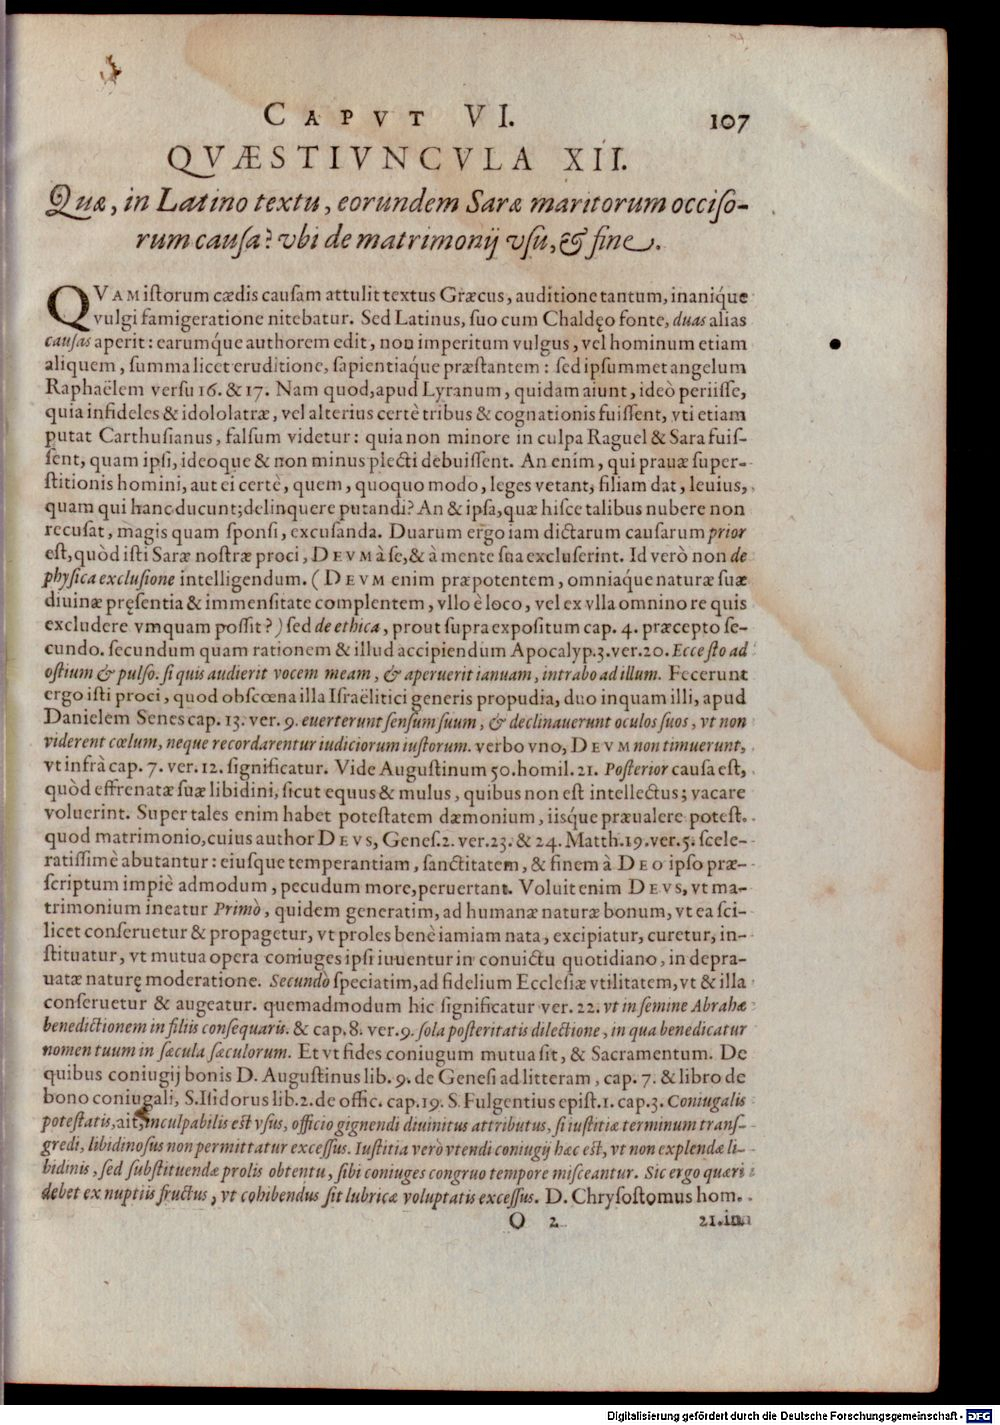 CAPVT VI. 107
QVÆSTIVNCVLA XII.
Quæ, in Latino textu, eorundem Saræ maritorum occiso-
rum causa? vbi de matrimonij vsu, & fine.
QVAM istorum cædis causam attulit textus Græcus, auditione tantum, inaniq́ue
vulgi famigeratione nitebatur. Sed Latinus, suo cum Chaldęo fonte, duas alias
causas aperit: earumq́ue authorem edit, non imperitum vulgus, vel hominum etiam
aliquem, summa licet eruditione, sapientiaq́ue præstantem: sed ipsummet angelum
Raphaëlem versu 16. & 17. Nam quod, apud Lyranum, quidam aiunt, ideò periisse,
quia infideles & idololatræ, vel alterius certè tribus & cognationis fuissent, vti etiam
putat Carthusianus, falsum videtur: quia non minore in culpa Raguel & Sara fuis-
sent, quam ipsi, ideoque & non minus plecti debuissent. An enim, qui prauæ super-
stitionis homini, aut ei certè, quem, quoquo modo, leges vetant, filiam dat, leuius,
quam qui hanc ducunt; delinquere putandi? An & ipsa, quæ hisce talibus nubere non
recusat, magis quam sponsi, excusanda. Duarum ergo iam dictarum causarum prior
est, quòd isti Saræ nostræ proci, DEVM à se, & à mente sua excluserint. Id verò non de
physica exclusione intelligendum. (DEVM enim præpotentem, omniaq́ue naturæ suæ
diuinæ pręsentia & immensitate complentem, vllo è loco, vel ex vlla omnino re quis
excludere vmquam possit?) sed de ethica, prout supra expositum cap. 4. præcepto se-
cundo. secundum quam rationem & illud accipiendum Apocalyp. 3. ver. 20. Ecce sto ad
ostium & pulso. si quis audierit vocem meam, & aperuerit ianuam, intrabo ad illum. Fecerunt
ergo isti proci, quod obscœna illa Israëlitici generis propudia, duo inquam illi, apud
Danielem Senes cap. 13. ver. 9. euerterunt sensum suum, & declinauerunt oculos suos, vt non
viderent cœlum, neque recordarentur iudiciorum iustorum. verbo vno, DEVM non timuerunt,
vt infrà cap. 7. ver. 12. significatur. Vide Augustinum 50. homil. 21. Posterior causa est,
quòd effrenatæ suæ libidini, sicut equus & mulus, quibus non est intellectus; vacare
voluerint. Super tales enim habet potestatem dæmonium, iisque præualere potest.
quod matrimonio, cuius author DEVS, Genes. 2. ver. 23. & 24. Matth. 19. ver. 5. scele-
ratissimè abutantur: eiusque temperantiam, sanctitatem, & finem à DEO ipso præ-
scriptum impiè admodum, pecudum more, peruertant. Voluit enim DEVS, vt ma-
trimonium ineatur Primò, quidem generatim, ad humanæ naturæ bonum, vt ea sci-
licet conseruetur & propagetur, vt proles benè iamiam nata, excipiatur, curetur, in-
stituatur, vt mutua opera coniuges ipsi iuuentur in conuictu quotidiano, in depra-
uatæ naturę moderatione. Secundò speciatim, ad fidelium Ecclesiæ vtilitatem, vt & illa
conseruetur & augeatur. quemadmodum hic significatur ver. 22. vt in semine Abrahæ
benedictionem in filiis consequaris. & cap. 8. ver. 9. sola posteritatis dilectione, in qua benedicatur
nomen tuum in sæcula sæculorum. Et vt fides coniugum mutua sit, & Sacramentum. De
quibus coniugij bonis D. Augustinus lib. 9. de Genesi ad litteram, cap. 7. & libro de
bono coniugali, S. Isidorus lib. 2. de offic. cap. 19. S. Fulgentius epist. 1. cap. 3. Coniugalis
potestatis, ait, inculpabilis est vsus, officio gignendi diuinitus attributus, si iustitiæ terminum trans-
gredi, libidinosus non permittatur excessus. Iustitia verò vtendi coniugij hæc est, vt non explendæ li-
bidinis, sed substituendæ prolis obtentu, sibi coniuges congruo tempore misceantur. Sic ergo quæri
debet ex nuptiis fructus, vt cohibendus sit lubricæ voluptatis excessus. D. Chrysostomus hom.
O 2 21. in
Digitalisierung gefördert durch die Deutsche Forschungsgemeinschaft - DFG